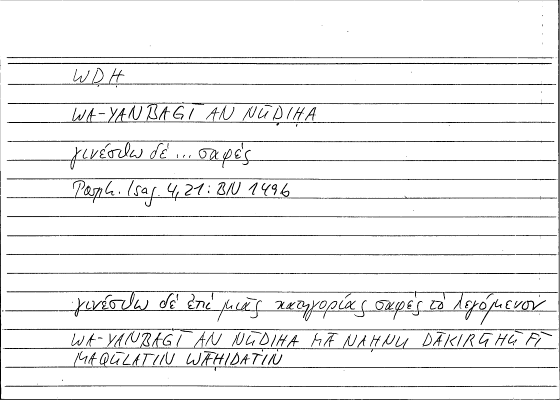 WḌḤ
WA-YANBAĠĪ AN NŪḌIḤA
γινέσθω δὲ ... σαφές
Porph. Isag. 4,21: BN 149b
γινέσθω δὲ ἐπὶ μιᾶς κατηγορίας σαφὲς τὸ λεγόμενον
WA-YANBAĠĪ AN NŪḌIḤA MĀ NAḤNU ḎĀKIRŪHŪ FĪ
MAQŪLATIN WĀḤIDATIN